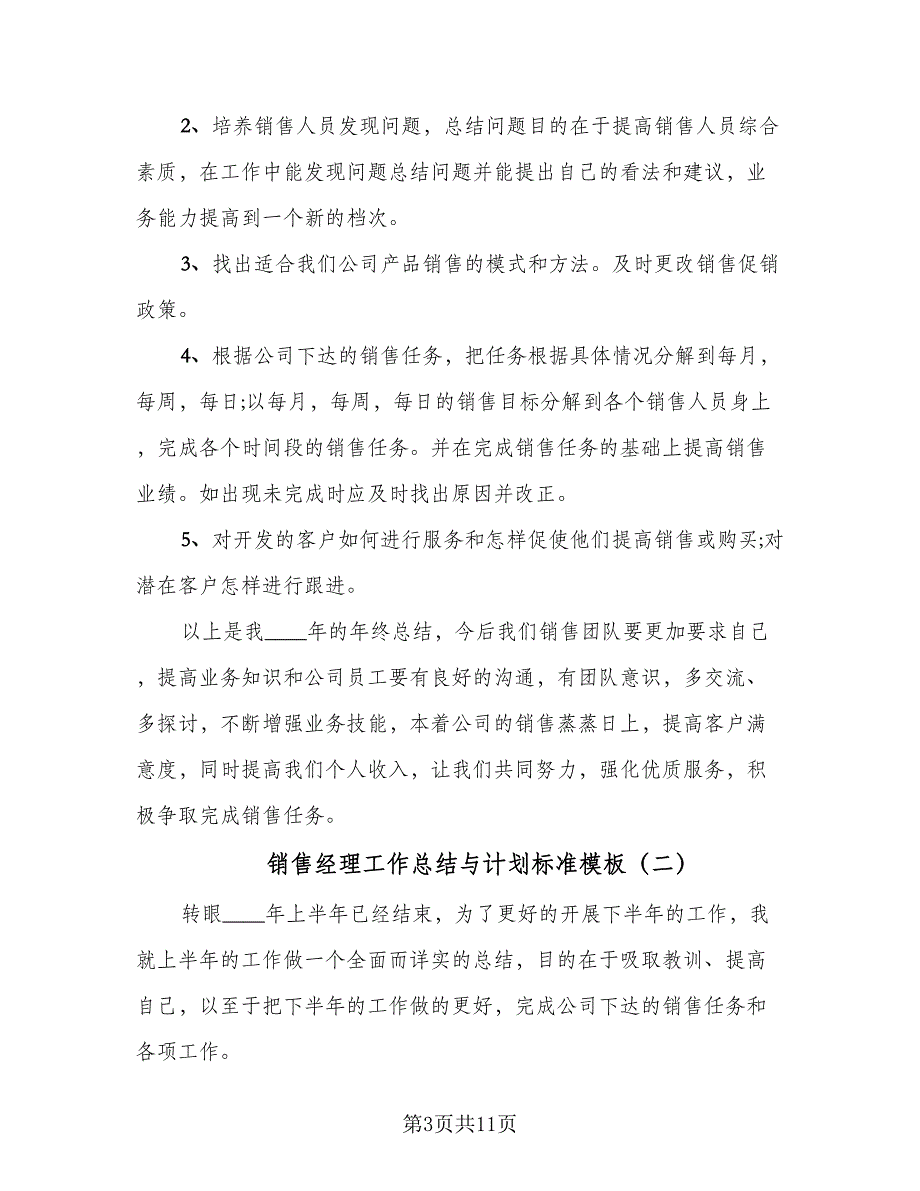 2、培养销售人员发现问题，总结问题目的在于提高销售人员综合
素质，在工作中能发现问题总结问题并能提出自己的看法和建议，业
务能力提高到一个新的档次。
3、找出适合我们公司产品销售的模式和方法。及时更改销售促销
政策。
4、根据公司下达的销售任务，把任务根据具体情况分解到每月，
每周，每日;以每月，每周，每日的销售目标分解到各个销售人员身上
，完成各个时间段的销售任务。并在完成销售任务的基础上提高销售
业绩。如出现未完成时应及时找出原因并改正。
5、对开发的客户如何进行服务和怎样促使他们提高销售或购买;对
潜在客户怎样进行跟进。
以上是我____年的年终总结，今后我们销售团队要更加要求自己
，提高业务知识和公司员工要有良好的沟通，有团队意识，多交流、
多探讨，不断增强业务技能，本着公司的销售蒸蒸日上，提高客户满
意度，同时提高我们个人收入，让我们共同努力，强化优质服务，积
极争取完成销售任务。
销售经理工作总结与计划标准模板（二）
转眼____年上半年已经结束，为了更好的开展下半年的工作，我
就上半年的工作做一个全面而详实的总结，目的在于吸取教训、提高
自己，以至于把下半年的工作做的更好，完成公司下达的销售任务和
各项工作。
第3页共11页